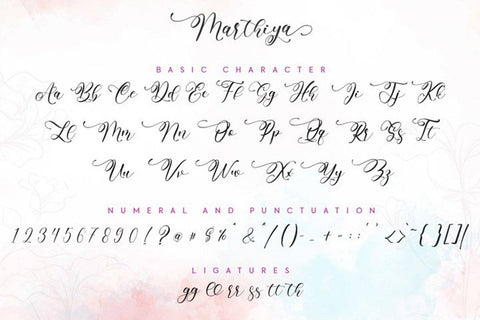 Marthiya
BASIC CHARACTER
Aa Bb Cc Dd Ee Ff Gg Hh Ii Jj Kk
Ll Mm Nn Oo Pp Qq Rr Ss Tt
Uu Vv Ww Xx Yy Zz
NUMERAL AND PUNCTUATION
1234567890!?@#$%^&*/()-_+=:;'",.<>`~{}[]|
LIGATURES
gg ll rr ss tt th